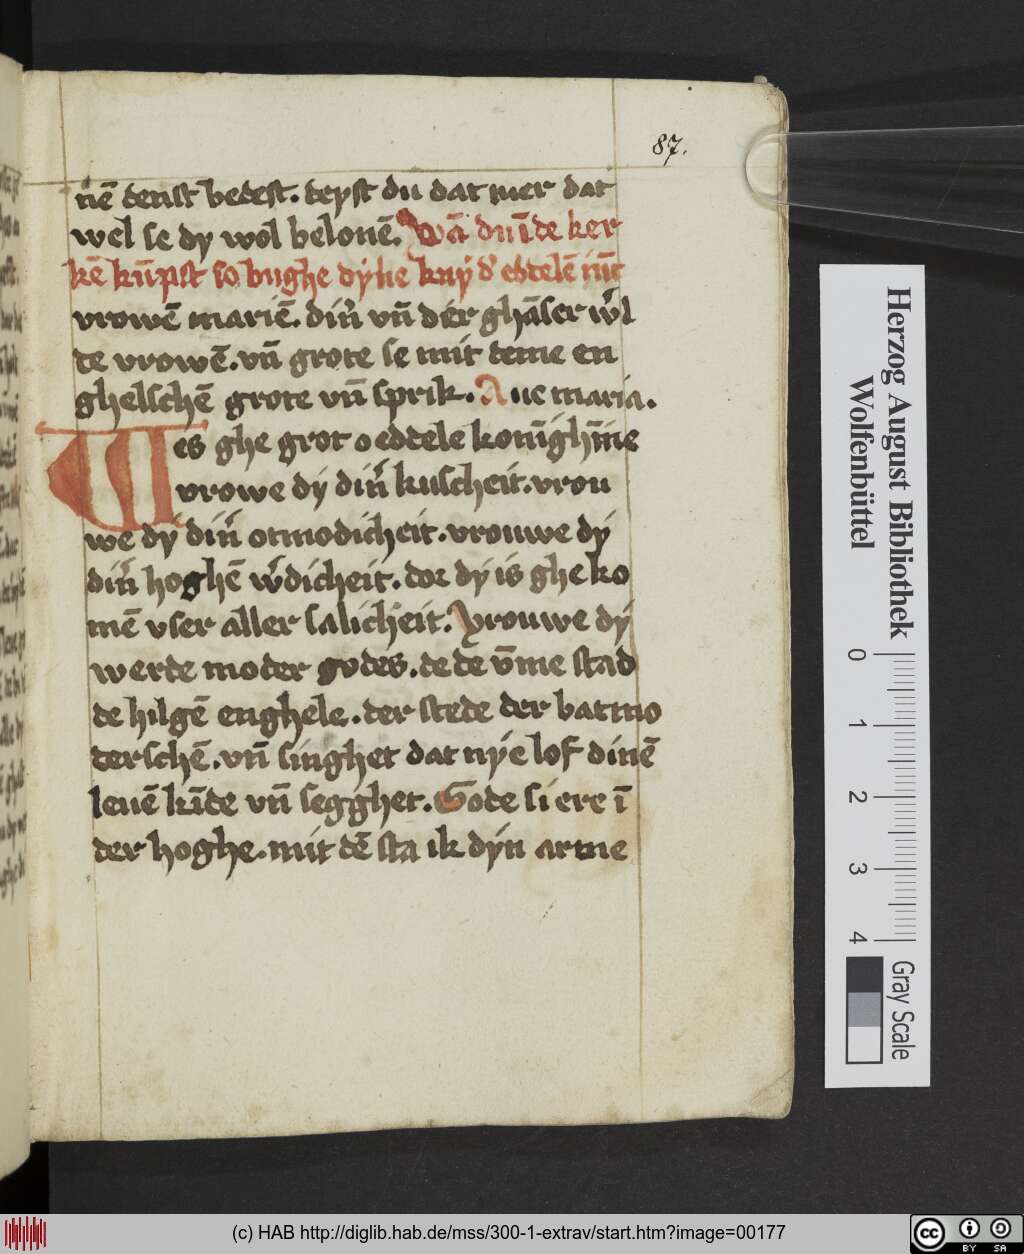 87.
nē denst bedest. deyst du dat mer dat
wel se dy wol belonē. Wā du ī de ker
kē kūpst so bughe dyne kny d' eddelē iūc
vrowē mariē. din̄ vn̄ der ghāser w'l
de vrowē. vn̄ grote se mit deme en
ghelschē grote vn̄ sprik. Aue maria.
Wes ghe grot o eddele konīghīne
vrowe dy din̄ kuscheit. vrou
we dy din̄ otmodicheit. vrouwe dy
din̄ hoghē w'dicheit. dor dy is ghe ko
mē vser aller salicheit. Vrouwe dy
werde moder godes. de de v̄me stad
de hilgē enghele. der stede der barmo
derschē. vn̄ singhet dat nye lof dinē
leuē kīde vn̄ segghet. Gode si ere ī
der hoghe. mit dē sta ik dyn arme
Herzog August Bibliothek
Wolfenbüttel
0 1 2 3 4
Gray Scale
(c) HAB http://diglib.hab.de/mss/300-1-extrav/start.htm?image=00177
cc BY SA